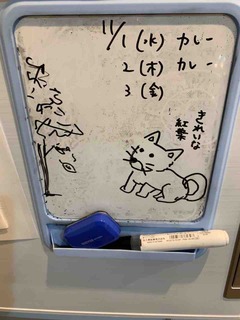 11/1 (水) カレー
2 (木) カレー
3 (金)
きれいな
紅葉